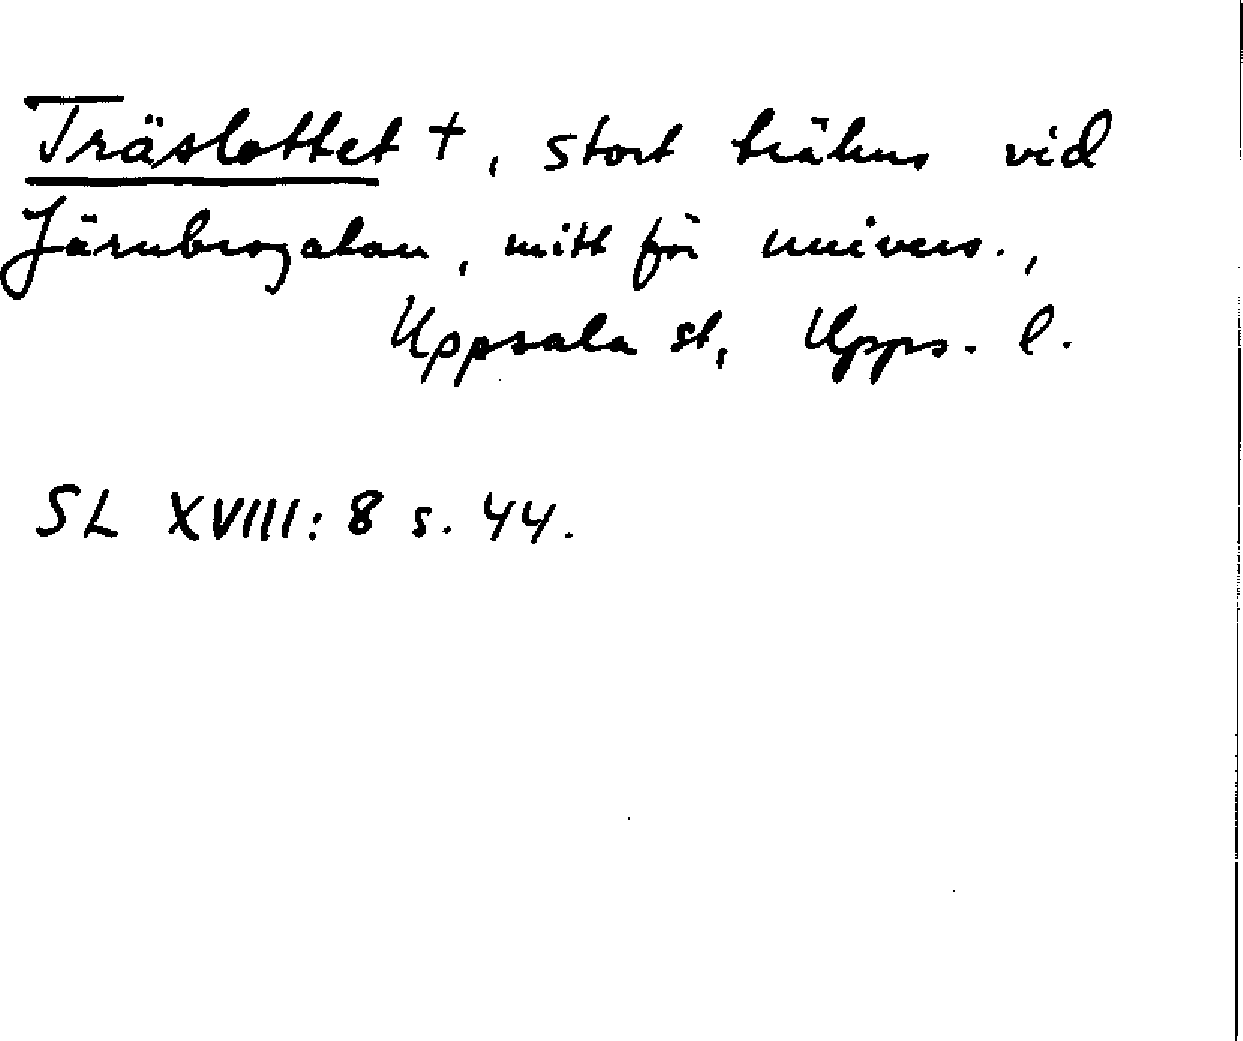 Träslottet +, stort trähus vid
Järnbrogatan, mitt för univers.,
Uppsala st, Upps. l.
SL XVIII: 8 s. 44.